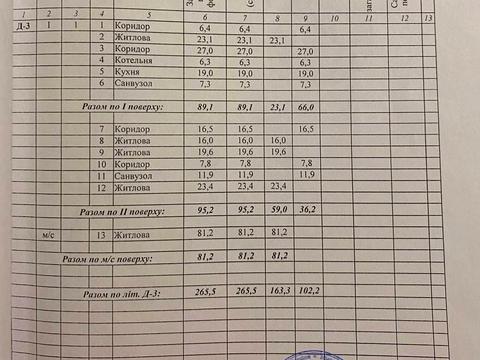 1 2 3 4 5 6 7 8 9 10 11 12 13
Д-3 I 1 1 Коридор 6,4 6,4 6,4
2 Житлова 23,1 23,1 23,1
3 Коридор 27,0 27,0 27,0
4 Котельня 6,3 6,3 6,3
5 Кухня 19,0 19,0 19,0
6 Санвузол 7,3 7,3 7,3
Разом по I поверху: 89,1 89,1 23,1 66,0
7 Коридор 16,5 16,5 16,5
8 Житлова 16,0 16,0 16,0
9 Житлова 19,6 19,6 19,6
10 Коридор 7,8 7,8 7,8
11 Санвузол 11,9 11,9 11,9
12 Житлова 23,4 23,4 23,4
Разом по II поверху: 95,2 95,2 59,0 36,2
м/с 13 Житлова 81,2 81,2 81,2
Разом по м/с поверху: 81,2 81,2 81,2
Разом по літ. Д-3: 265,5 265,5 163,3 102,2